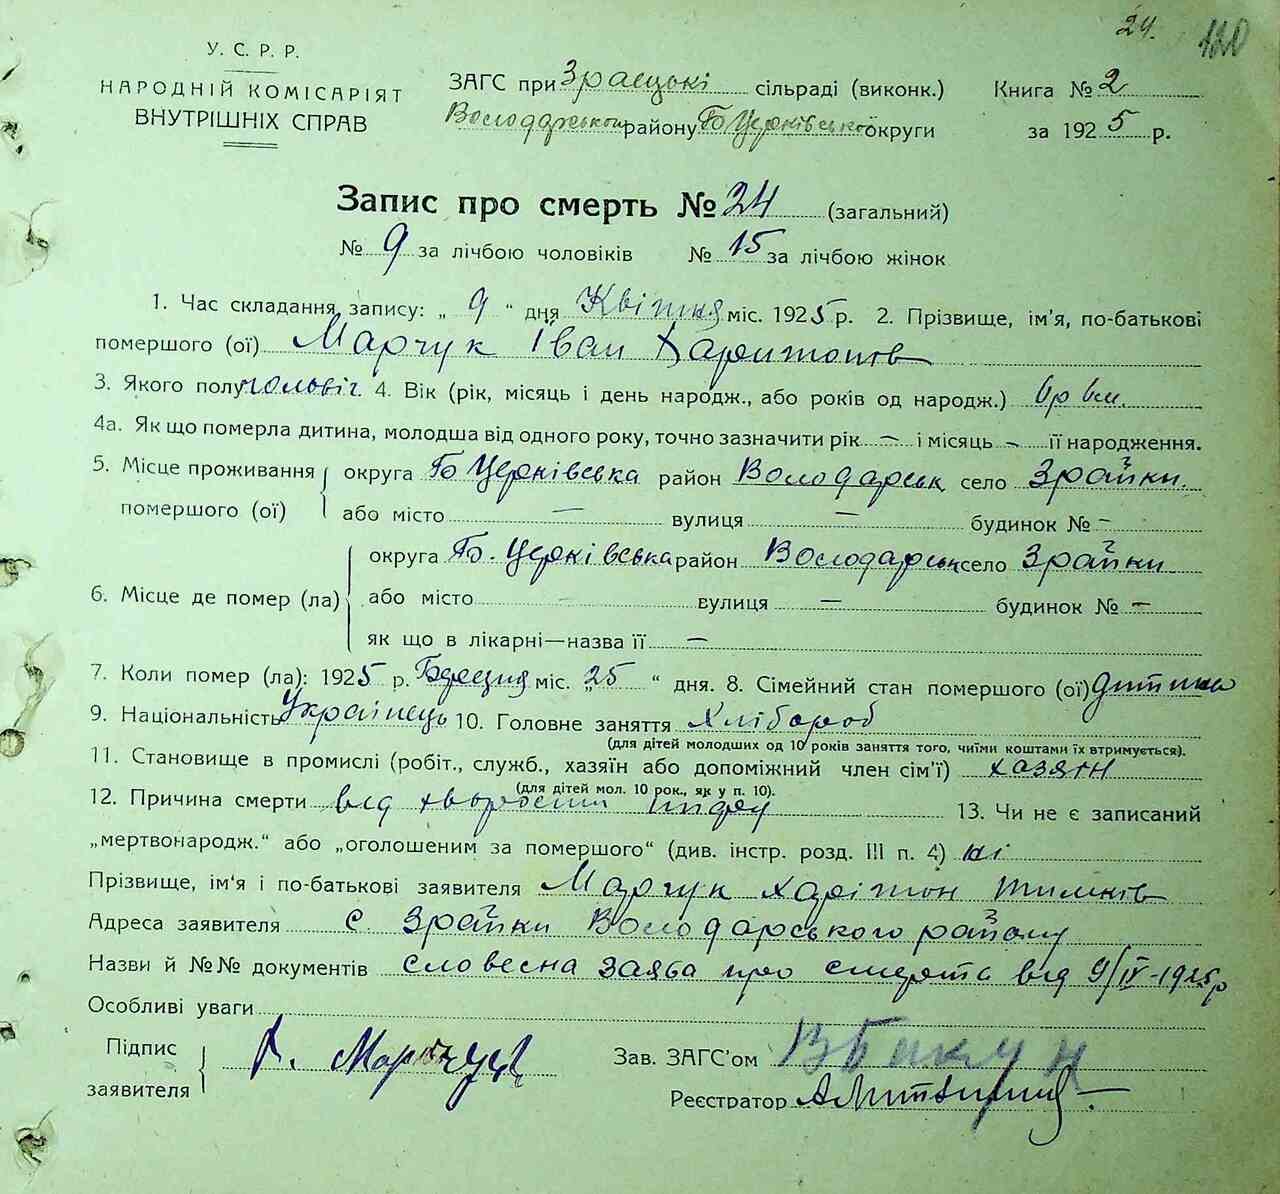 24. 120
У. С. Р. Р.
НАРОДНІЙ КОМІСАРІЯТ
ВНУТРІШНІХ СПРАВ
ЗАГС при Зраєцькі сільраді (виконк.)
Володарському району Б Церківської округи
Книга № 2
за 1925 р.
Запис про смерть № 24 (загальний)
№ 9 за лічбою чоловіків № 15 за лічбою жінок
1. Час складання запису: „ 9 “ дня Квітня міс. 1925 р. 2. Прізвище, ім’я, по-батькові
помершого (ої) Марчук Іван Харитонів
3. Якого полу чоловіч. 4. Вік (рік, місяць і день народж., або років од народж.) 6р 6м.
4а. Як що померла дитина, молодша від одного року, точно зазначити рік — і місяць - її народження.
5. Місце проживання помершого (ої) округа Б Церківська район Володарськ село Зрайки.
або місто — вулиця — будинок № -
6. Місце де помер (ла) округа Б. Церківська район Володарськ село Зрайки
або місто вулиця — будинок № -
як що в лікарні—назва її —
7. Коли помер (ла): 1925 р. міс. „25 “ дня. 8. Сімейний стан помершого (ої) дитина
9. Національність Українець 10. Головне заняття Хлібороб
(для дітей молодших од 10 років заняття того, чиїми коштами їх втримується).
11. Становище в промислі (робіт., служб., хазяїн або допоміжний член сім’ї) хазяїн
(для дітей мол. 10 рок., як у п. 10).
12. Причина смерти від 13. Чи не є записаний
„мертвонародж.“ або „оголошеним за помершого“ (див. інстр. розд. III п. 4) ні
Прізвище, ім‘я і по-батькові заявителя Марчук Харітон Тимків
Адреса заявителя с. Зрайки Володарського району
Назви й №№ документів словесна заява про смерть від 9/IV-1925р
Особливі уваги
Підпис заявителя Х. Марчук
Зав. ЗАГС’ом В Бакун
Реєстратор